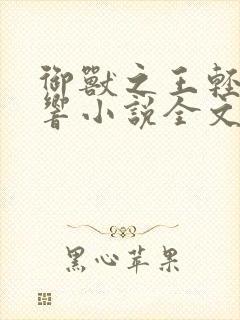 御獸之王輕
響小說全文
黑心苹果